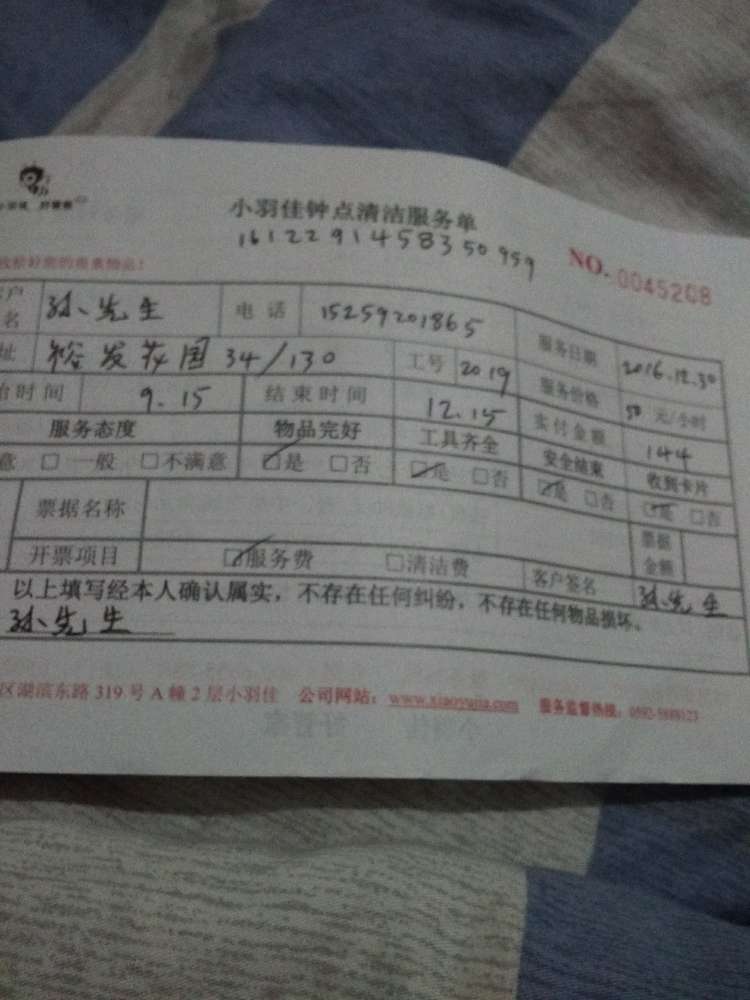 小羽佳钟点清洁服务单
161229145835095 9
NO. 0045208
户名 孙先生 电话 15259201865 服务日期 2016.12.30
址 裕发花园 34/130 工号 2019 服务价格 50 元/小时
时间 9.15 结束时间 12.15 实付金额 144
服务态度 物品完好 工具齐全 安全结束 收到卡片
意 □一般 □不满意 ☑是 □否 ☑是 □否 ☑是 □否 ☑是 □否
票据名称 票据金额
开票项目 ☑服务费 □清洁费 客户签名 孙先生
以上填写经本人确认属实,不存在任何纠纷,不存在任何物品损坏。
孙先生
区湖滨东路 319 号 A 幢 2 层小羽佳 公司网站: www.xiaoyujia.com 服务监督热线: